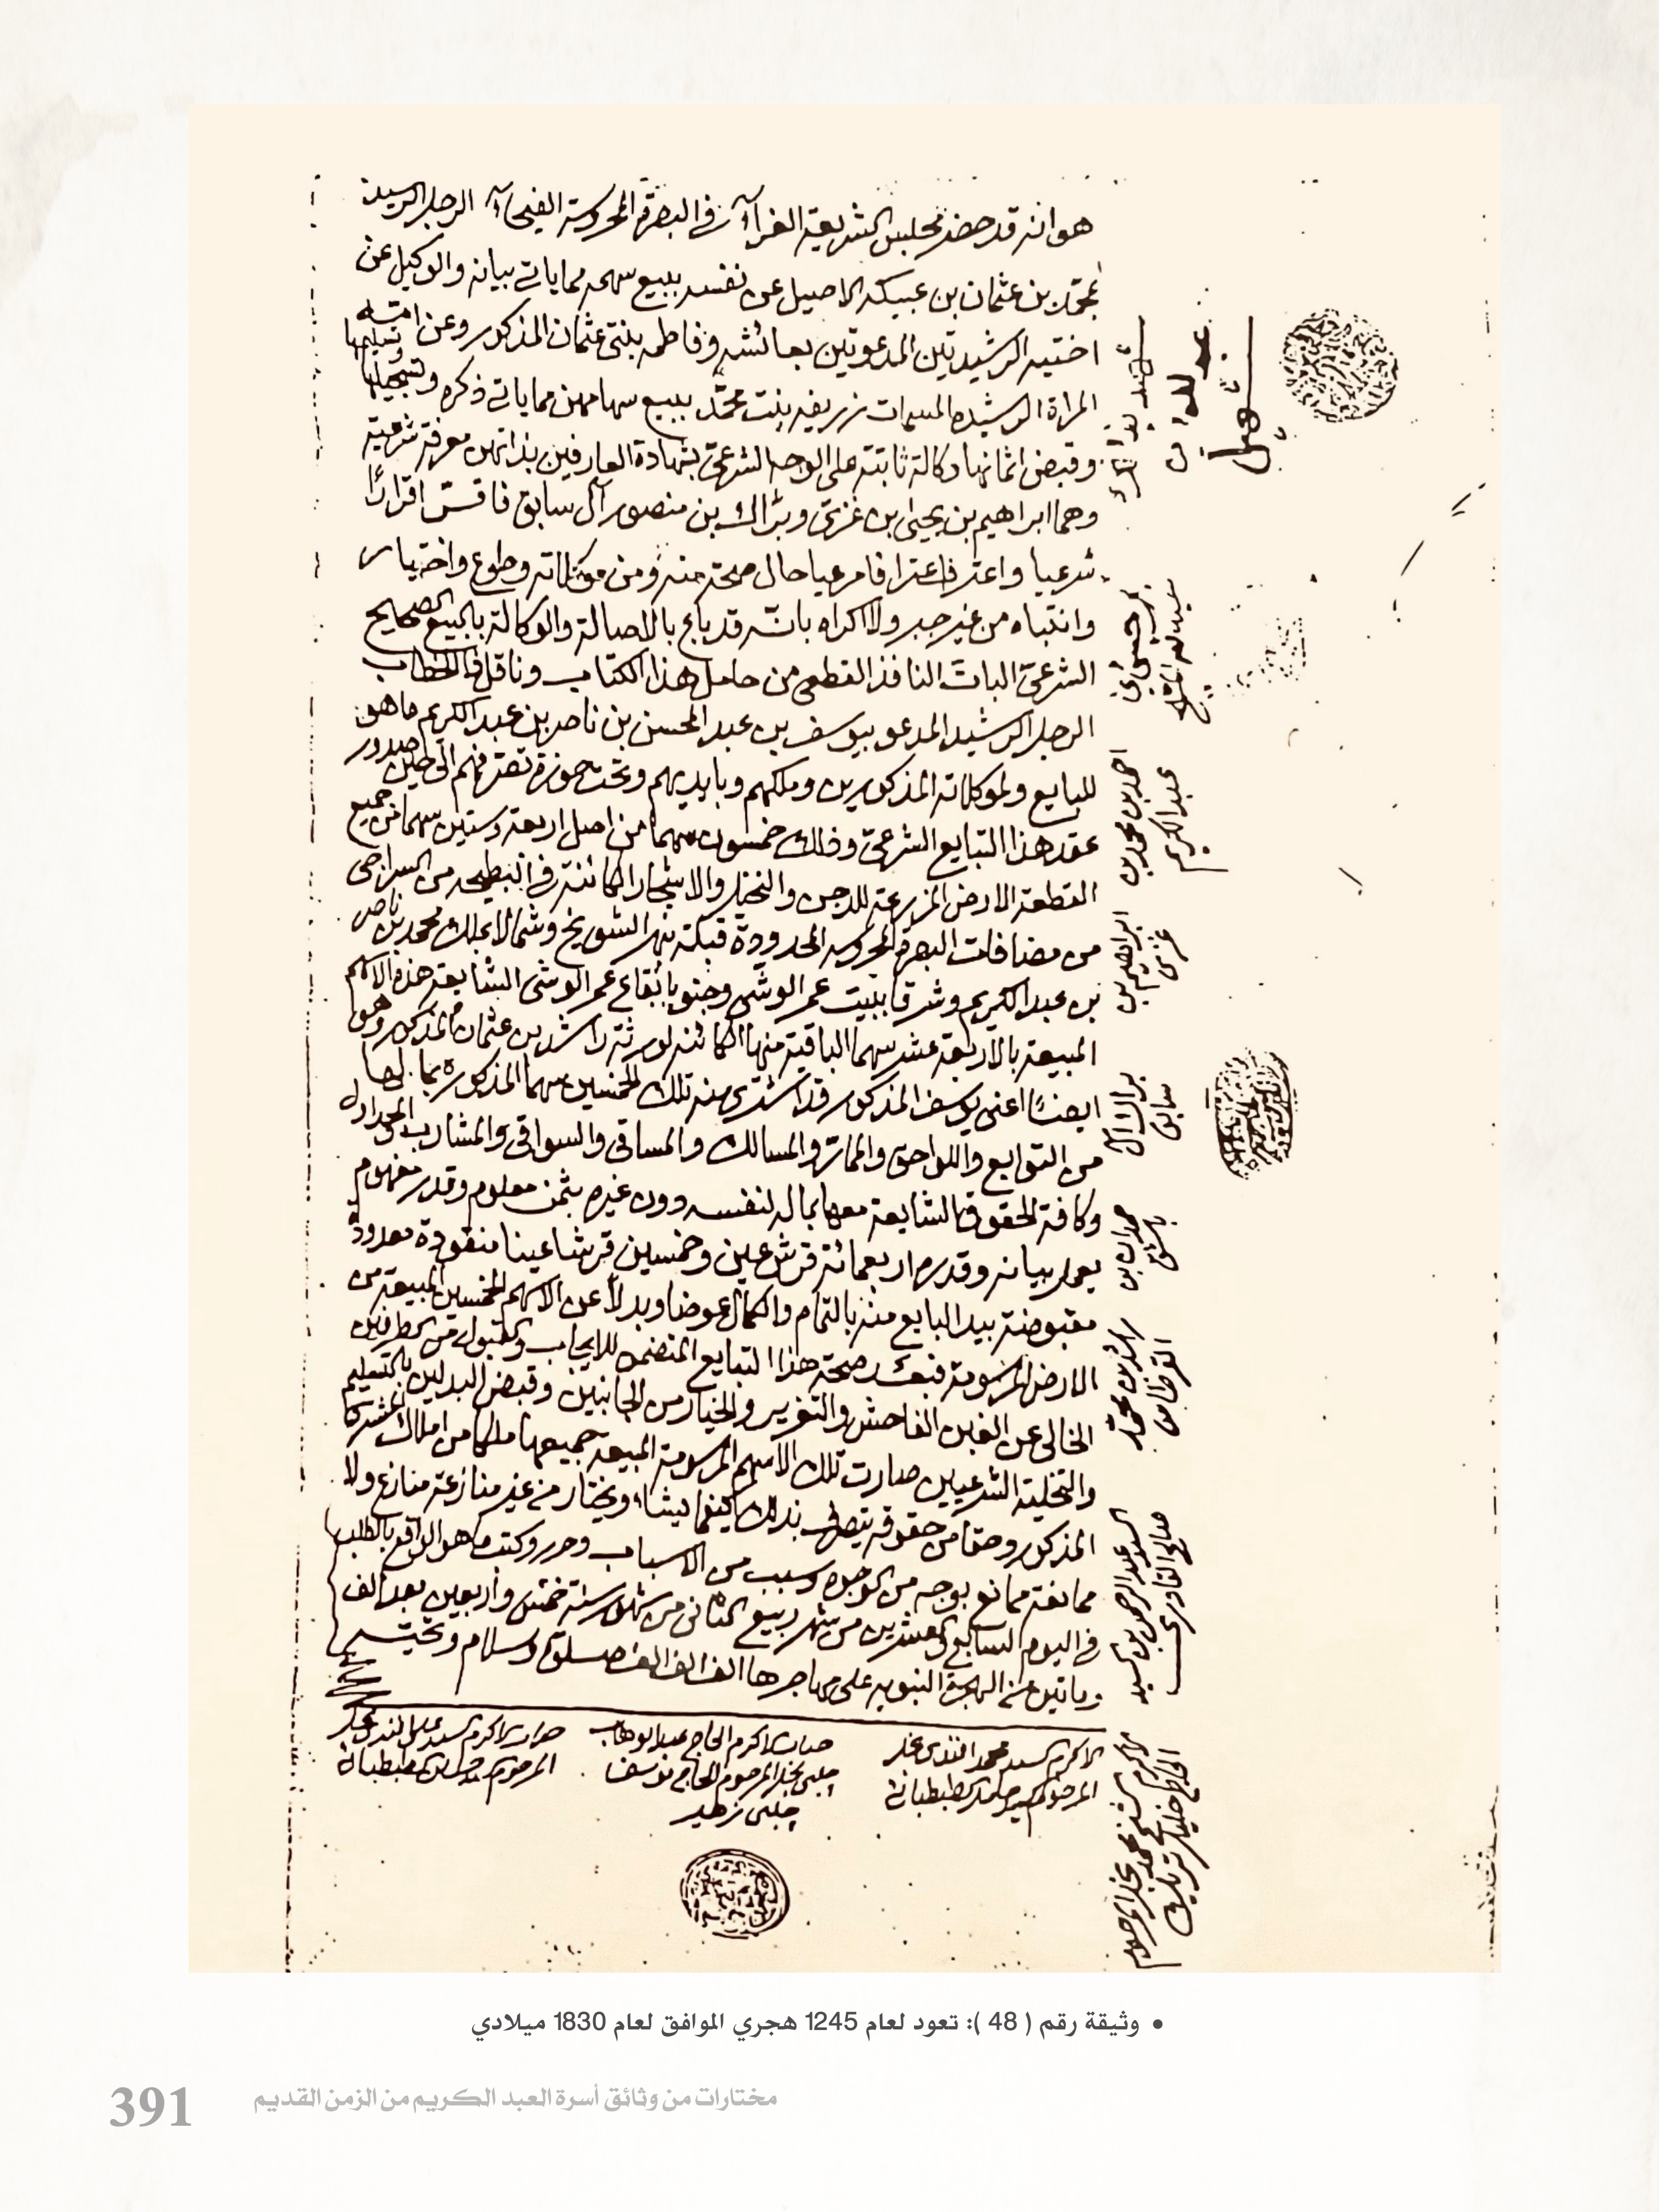 هو انه قد حضر مجلس الشريعة الغرآء في البصرة المحروسة الفيحآء الرجل الرشيد
محمد بن عثمان بن عبيكه الاصيل عن نفسه ببيع سهمه مما ياتي بيانه والوكيل عن
اختيه الرشيدتين المدعوتين بعائشه وفاطمه بنتي عثمان المذكور وعن امته
المراة الرشيده المسمات زريفه بنت محمد ببيع سهامهن مما ياتي ذكره وتسجيلها وتسليمها
وقبض اثمانها وكالة ثابتة على الوجه الشرعي بشهادة العارفين بذاتهن معرفة شرعية
وهما ابراهيم بن يحيى بن غزي وبراك بن منصور آل سابق فاقر اقرارًا
شرعيا واعترف اعترافا مرعيا حال صحة منه ومن موكلاته وطوع واختيار
وانتباه من غير جبر ولا اكراه بانه قد باع بالاصالة والوكالة بالبيع الصحيح
الشرعي البات النافذ القطعي من حامل هذا الكتاب وناقل ذا الخطاب
الرجل الرشيد المدعو بيوسف بن عبد المحسن بن ناصر بن عبد الكريم ما هو
للبايع ولموكلاته المذكورين وملكهم وبايديهم وتحت حوزة تصرفهم الى حين صدور
عقد هذا التبايع الشرعي وذلك خمسون سهما من اصل اربعة وستين سهما من جميع
القطعة الارض المزرعة للدجن والنخل والاشجار الكائنة في البطيحه من السراجي
من مضافات البصرة المحروسه المحدودة قبلة نهر الشويخ وشمالا بملك محمد بن ناصر
بن عبد الكريم وشرقا ببيت عمر الوشمي وجنوبا بقاع عمر الوشمي الشايعة هذه الاسهم
المبيعة بالاربعة عشر سهما الباقية منها الكائنه لورثة راشد بن عثمان المذكور وهو
ايضًا اعني يوسف المذكور قد اشترى منه تلك الخمسين سهما المذكوره بما لها
من التوابع واللواحق والممار والمسالك والمساقي والسواقي والمشارب والجداول
وكافة الحقوق الشايعة معها بماله لنفسه دون غيره بثمن معلوم وقدر مفهوم
يعلم بيانه وقدره اربعمائة قرش عين وخمسين قرشا عينا منقودة معدودة
مقبوضة بيد البايع منه بالتمام والكمال عوضا وبدلا عن الاسهم الخمسين المبيعة من
الارض المرسومة فبعد صحة هذا التبايع المتضمن للايجاب والقبول من الطرفين
الخالي عن الغبن الفاحش والتغرير والخيار من الجانبين وقبض البدلين بالتسليم
والتخلية الشرعيين صارت تلك الاسهم المرسومة المبيعة جميعها ملكا من املاك المشتري
المذكور وحقا من حقوقه يتصرف بذلك كيفما يشاء ويختار من غير منازعة منازع ولا
ممانعة ممانع بوجه من الوجوه وسبب من الاسباب وحرر وكتب ما هو الواقع بالطلب
في اليوم السابع والعشرين من شهر ربيع الثاني من شهور سنة خمس واربعين بعد الف
ومايتين من الهجرة النبويه على مهاجرها الف الف الف صلوة وسلام وتحية
الاكرم السيد محمد افندي نجل
المرحوم السيد حامد الطبطبائي
جناب الاكرم الحاج عبد الوهاب
چلبي نجل المرحوم الحاج يوسف
چلبي زهير
جناب الاكرم السيد علي افندي نجل
المرحوم الطبطبائي
شهيل
عبد الله بن
شهد بذلك
احمد بن محمد بن
عبد الكريم
ابراهيم بن
غزي
براك آل
سابق
حمدان بن
راشد بن محمد
القرطاس
السيد عبد الرحمن بن السيد
صالح القادري
الاكرم الشيخ محمد نجل المرحوم
الحاج خليل
• وثيقة رقم ( 48 ): تعود لعام 1245 هجري الموافق لعام 1830 ميلادي
مختارات من وثائق أسرة العبد الكريم من الزمن القديم
391